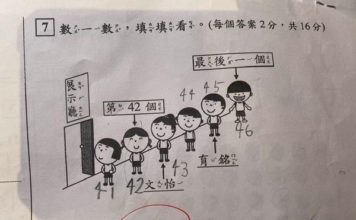 7 數一數，填填看。(每個答案2分，共16分)
最後一個
展示廳
第42個
44 45
46
41 42 43
文怡
育銘